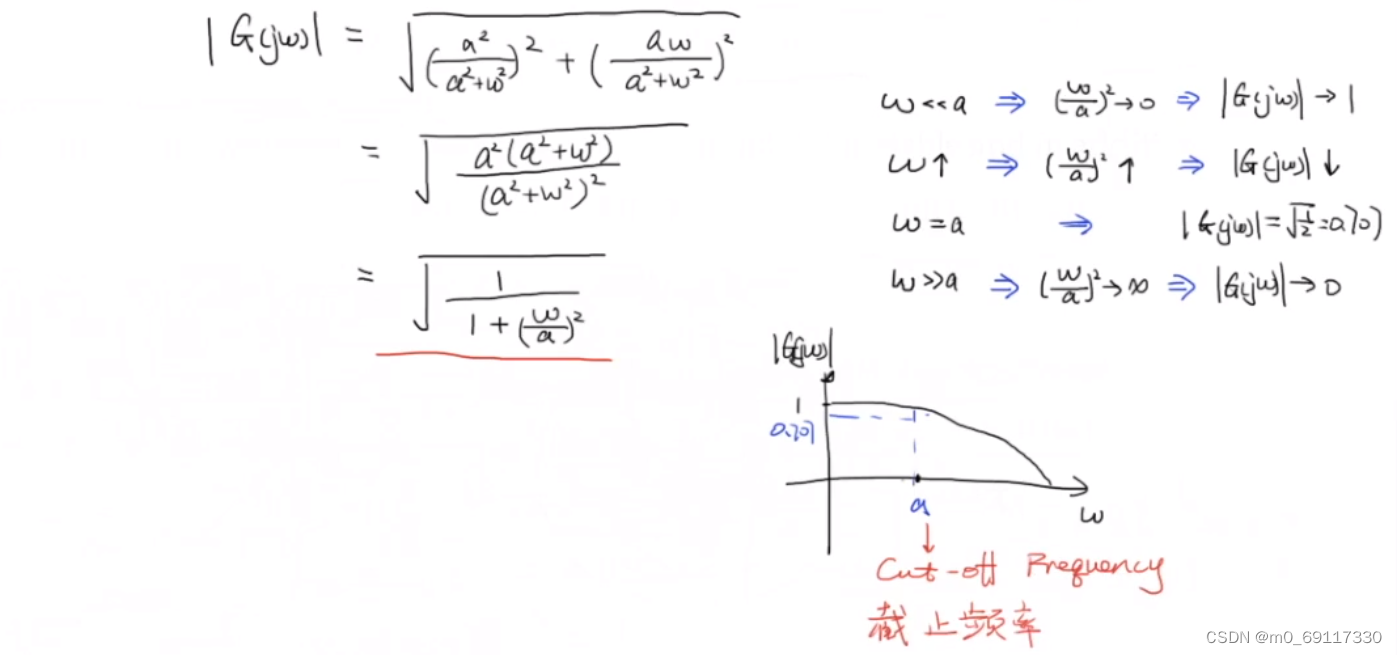 |G(jω)| = √((a²/(a²+ω²))² + (aω/(a²+ω²))²)
= √(a²(a²+ω²)/(a²+ω²)²)
= √(1/(1+(ω/a)²))
ω<<a ⇒ (ω/a)²→0 ⇒ |G(jω)|→1
ω↑ ⇒ (ω/a)²↑ ⇒ |G(jω)|↓
ω=a ⇒ |G(jω)|=√(1/2)=0.707
ω>>a ⇒ (ω/a)²→∞ ⇒ |G(jω)|→0
|G(jω)|
1
0.707
a
ω
Cut-off Frequency
截止频率
CSDN @m0_69117330